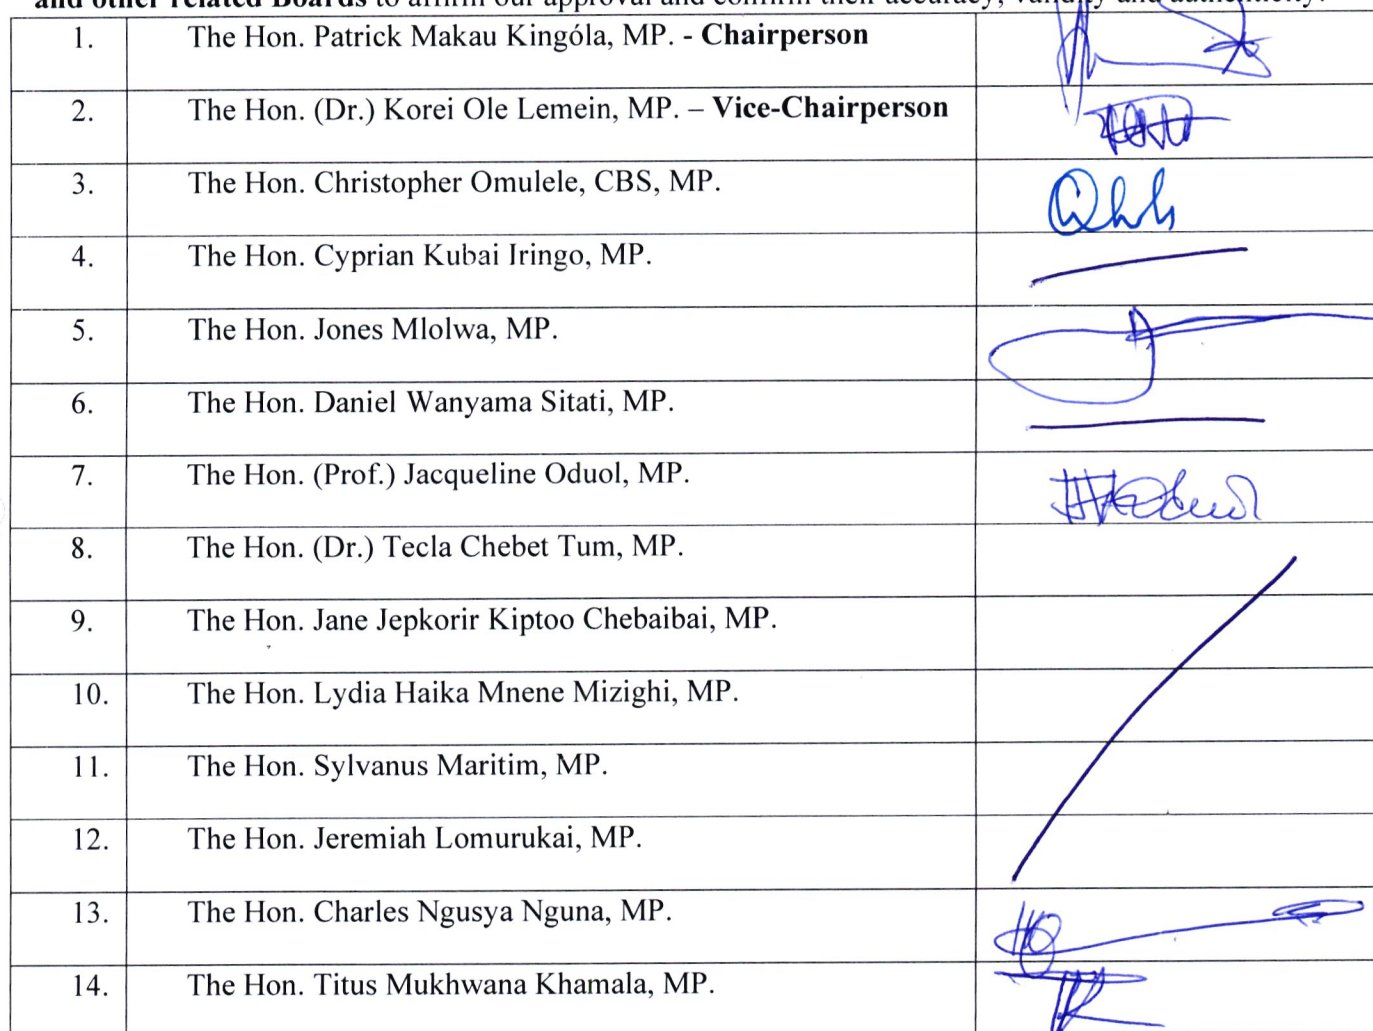 and other related Boards to affirm our approval and confirm their accuracy, validity and authenticity.
1. The Hon. Patrick Makau Kingóla, MP. - Chairperson
2. The Hon. (Dr.) Korei Ole Lemein, MP. – Vice-Chairperson
3. The Hon. Christopher Omulele, CBS, MP.
4. The Hon. Cyprian Kubai Iringo, MP.
5. The Hon. Jones Mlolwa, MP.
6. The Hon. Daniel Wanyama Sitati, MP.
7. The Hon. (Prof.) Jacqueline Oduol, MP.
8. The Hon. (Dr.) Tecla Chebet Tum, MP.
9. The Hon. Jane Jepkorir Kiptoo Chebaibai, MP.
10. The Hon. Lydia Haika Mnene Mizighi, MP.
11. The Hon. Sylvanus Maritim, MP.
12. The Hon. Jeremiah Lomurukai, MP.
13. The Hon. Charles Ngusya Nguna, MP.
14. The Hon. Titus Mukhwana Khamala, MP.